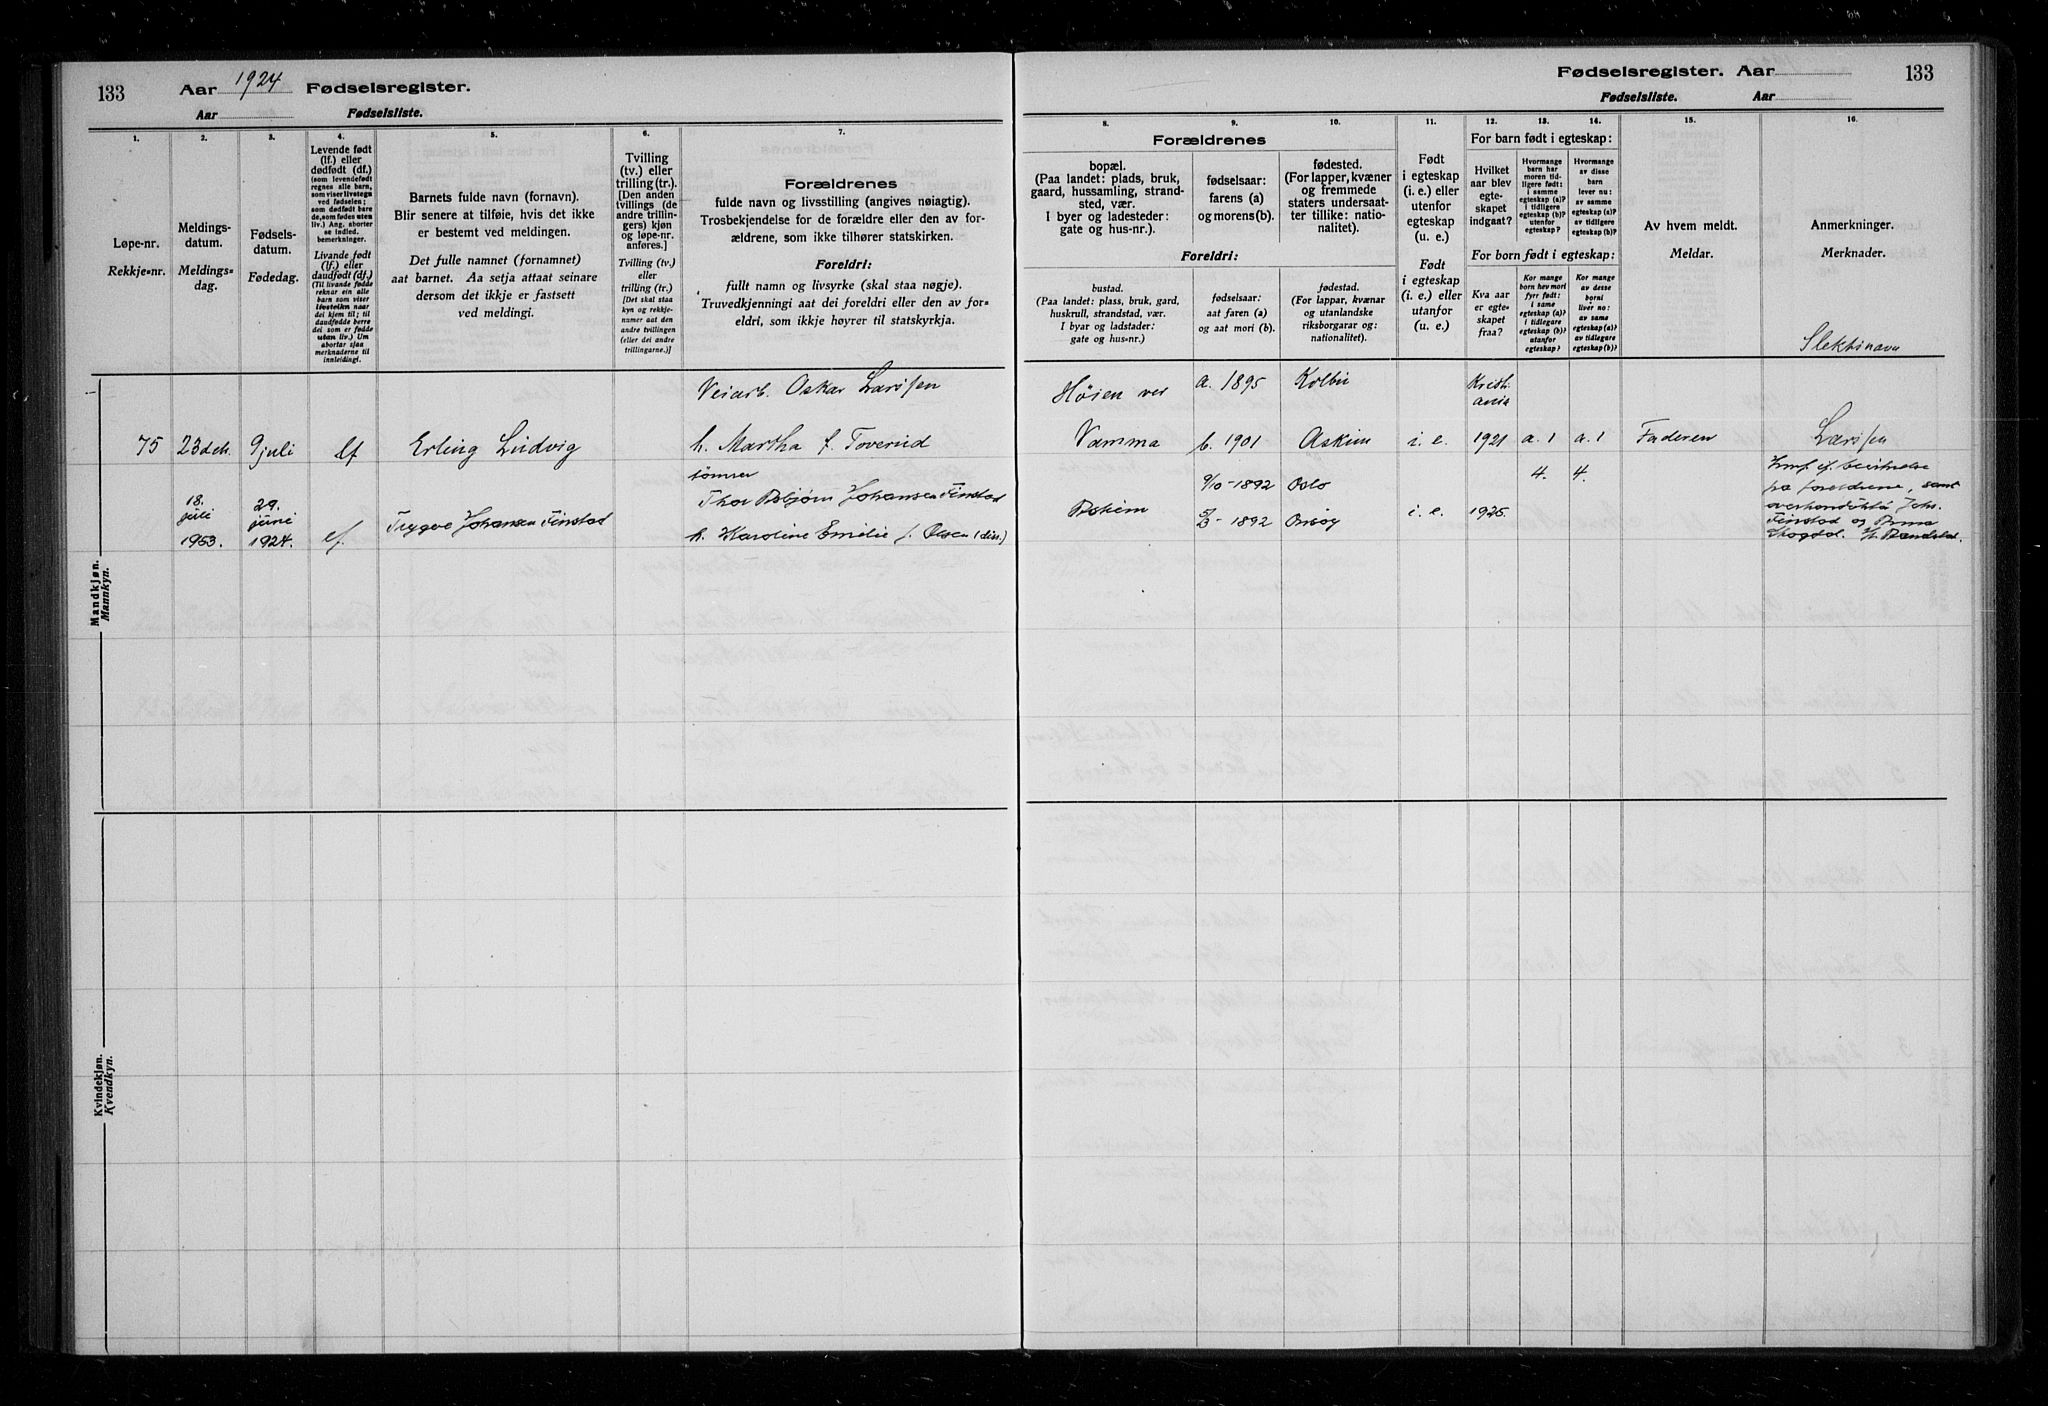 133
Aar 1924 Fødselsregister.
Aar Fødselsliste.
Fødselsregister. Aar 133
Fødselsliste. Aar
1.
Løpe-nr.
Rekkje-nr.
2.
Meldings-
datum.
Meldings-
dag.
3.
Fødsels-
datum.
Fødedag.
4.
Levende født
(lf.) eller
dødfødt (df.)
(som levendefødt
regnes alle barn,
som viser livstegn
ved fødselen;
som dødfødt bare
de, som fødes uten
liv.) Ang. aborter
se indled.
bemerkninger.
Livande født
(lf.) eller
daudfødt (df.)
(Til livande fødde
reknar ein alle
barn som viser
livsteikn naar
dei kjem til; til
daudfødde berre
dei som er fødde
utan liv.) Um
abortar sjaa
merknaderne til
innleidingi.
5.
Barnets fulde navn (fornavn).
Blir senere at tilføie, hvis det ikke
er bestemt ved meldingen.
Det fulle namnet (fornamnet)
aat barnet. Aa setja attaat seinare
dersom det ikkje er fastsett
ved meldingi.
6.
Tvilling
(tv.) eller
trilling (tr.).
[Den anden
tvillings (de
andre trillin-
gers) kjøn
og løpe-nr.
anføres.]
Tvilling (tv.)
eller
trilling (tr.)
[Det skal staa
kyn og rekkje-
numer aat den
andre tvillingen
(eller dei andre
trillingarne.)]
7.
Forældrenes
fulde navn og livsstilling (angives nøiagtig).
Trosbekjendelse for de forældre eller den av for-
ældrene, som ikke tilhører statskirken.
Foreldri:
fullt namn og livsyrke (skal staa nøgje).
Truvedkjenningi aat dei foreldri eller den av for-
eldri, som ikkje høyrer til statskyrkja.
8. 9. 10.
Forældrenes
bopæl.
(Paa landet: plads, bruk,
gaard, hussamling, strand-
sted, vær.
I byer og ladesteder:
gate og hus-nr.).
fødselsaar:
farens (a)
og morens(b).
fødested.
(For lapper, kvæner
og fremmede
staters undersaat-
ter tillike: natio-
nalitet).
Foreldri:
bustad.
(Paa landet: plass, bruk, gard,
huskrull, strandstad, vær.
I byar og ladstader:
gate og hus-nr.)
fødselsaar:
aat faren (a)
og aat mori (b).
fødestad.
(For lappar, kvænar
og utanlandske
riksborgarar og:
nationalitet).
11.
Født
i egteskap
(i. e.) eller
utenfor
egteskap
(u. e.)
Født
i egteskap
(i. e.) eller
utanfor
(u. e.)
12. 13. 14.
For barn født i egteskap:
Hvilket
aar blev
egte-
skapet
indgaat?
Hvormange
barn har
moren tid-
ligere født:
i samme
egteskap (a)?
i tidligere
egteskap (b)?
utenfor
egteskap?
Hvormange
av disse
barn
lever nu:
av samme
egteskap (a)?
av tidligere
egteskap (b)?
For born født i egteskap:
Kva aar
er egte-
skapet
fraa?
Kor mange
born hev mori
fyrr født:
i same
egteskap (a)?
i tidlegare
egteskap (b)?
utanfor
egteskap?
Kor mange
av desse
borni
liver no:
av same
egteskap (a)?
av tidlegare
egteskap (b)?
15.
Av hvem meldt.
Meldar.
16.
Anmerkninger.
Merknader.
Slektsnavn
Mandkjøn.
Mannkyn.
Veiarb. Oskar Larssen
Høien ved a. 1895 Kolbu Kristi-
ania
75 23 des. 9 juli lf Erling Ludvig h. Martha f. Toverud
Vamma b. 1901 Askim i. e. 1921 a. 1 a. 1 Faderen Larssen
18.
juli
1953.
29.
juni
1924. lf. Trygve Johansen Finstad
tømrer
Thor Asbjørn Johansen Finstad
h. Karoline Emilie f. Olsen (diss.)
Askim
9/10-1892 Oslo
- 1892 Onsøy i. e. 1925. 4. 4.
på foreldrene, samt
Finstad og
Kvindekjøn.
Kvendkyn.